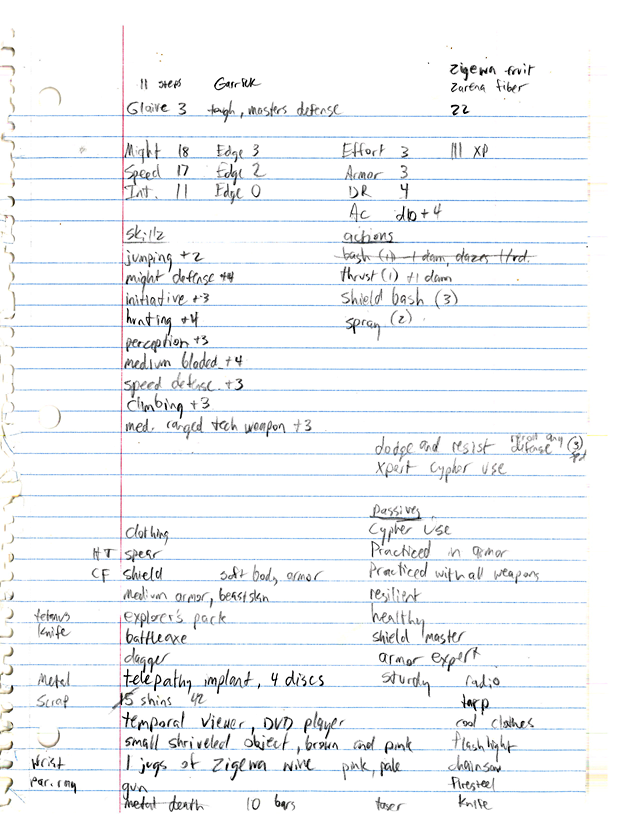 Zigewa fruit
11 steps Garrick Zarena fiber
Glaive 3 tough, masters defense 22
Might 18 Edge 3 Effort 3 III XP
Speed 17 Edge 2 Armor 3
Int. 11 Edge 0 DR 4
Ac d10+4
skillz actions
jumping +2 bash (1) -1 dam, dazes 1 rd.
might defense +4 thrust (1) +1 dam
initiative +3 shield bash (3)
hunting +4 spray (2)
perception +3
medium bladed +4
speed defense +3
climbing +3
med. ranged tech weapon +3
dodge and resist any defense (3)
xpert cypher use
passives
clothing Cypher Use
HT spear Practiced in armor
CF shield soft body, armor Practiced with all weapons
medium armor, beastskin resilient
explorer's pack healthy
knife battleaxe shield master
dagger armor expert
Metal telepathy implant, 4 discs sturdy radio
Scrap 15 shins 42 tarp
temporal viewer, DVD player cool clothes
small shriveled object, brown and pink flashlight
Wrist 1 jugs of Zigewa wine pink, pale chainsaw
par. ray gun firesteel
metal death 10 bars taser knife